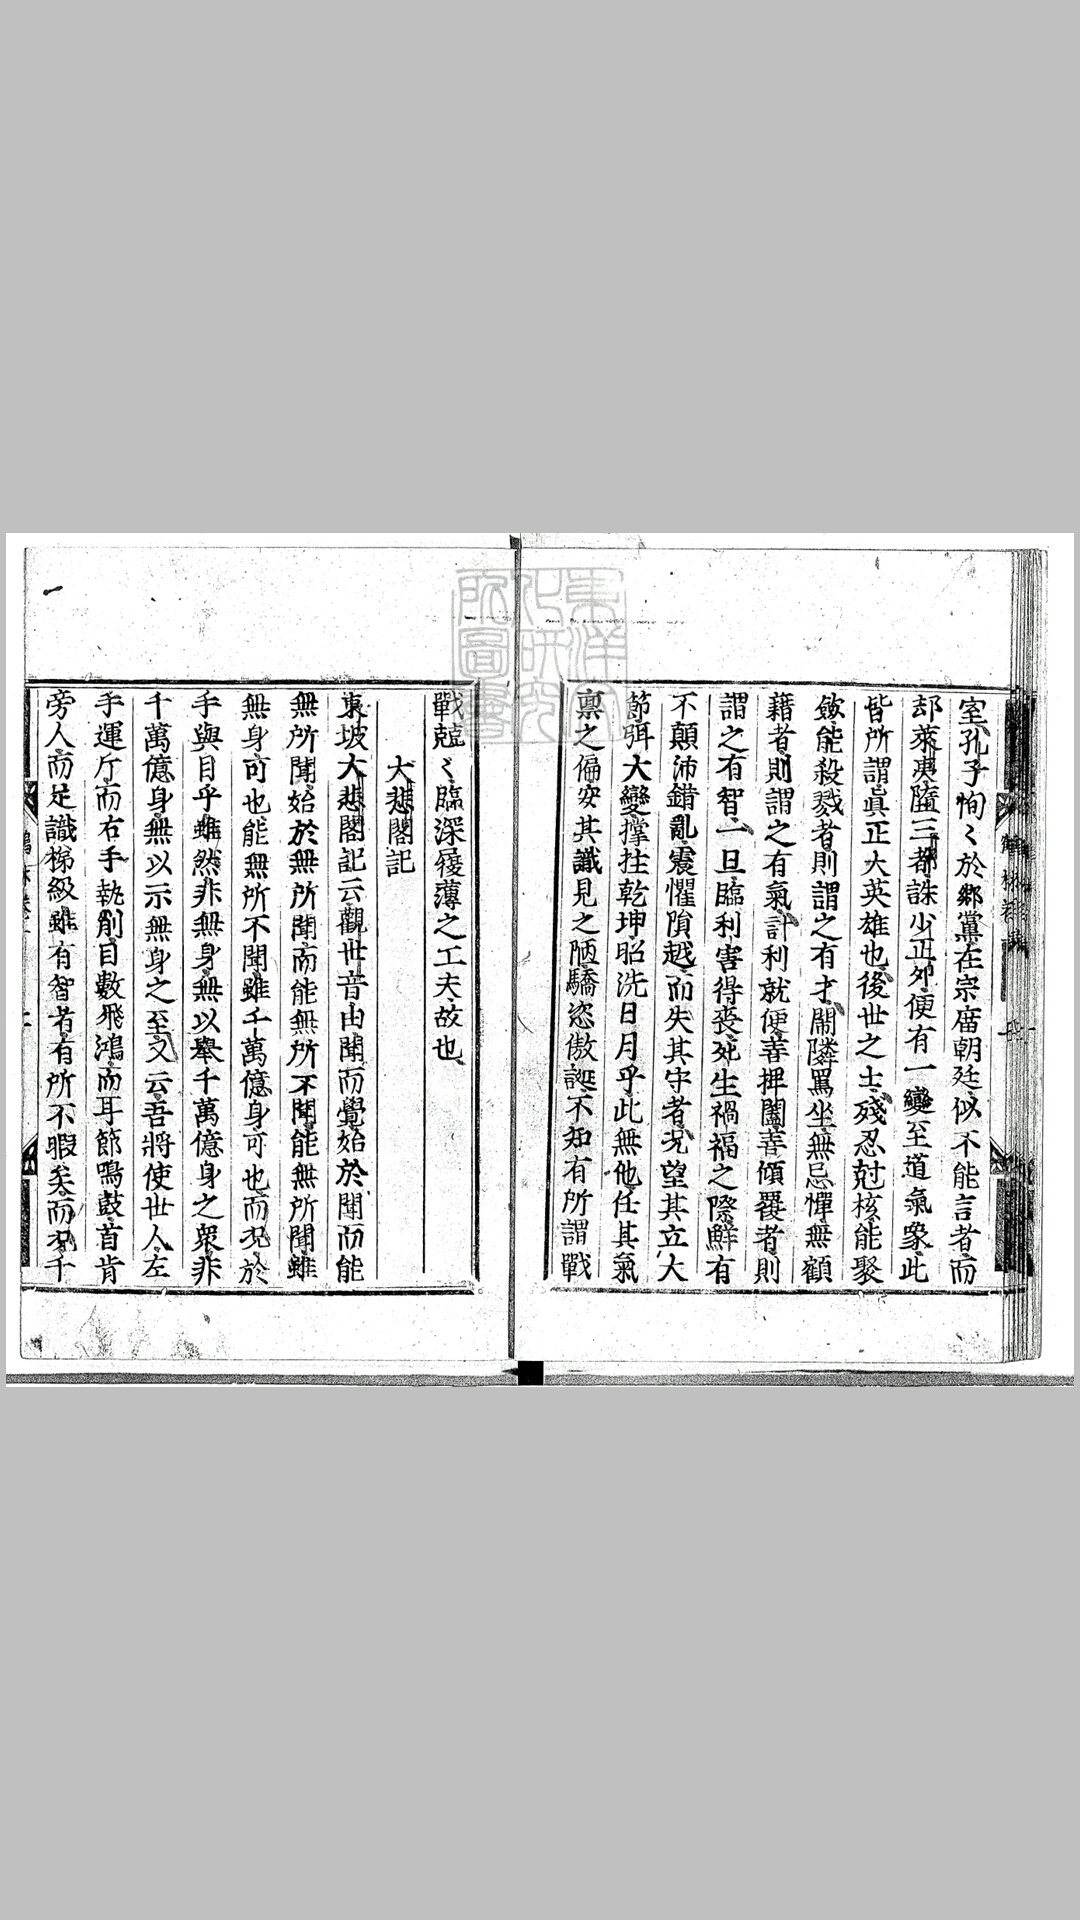 室孔子恂〻於鄉黨在宗庿朝廷似不能言者而
却萊夷隳三都誅少正卯便有一變至道氣象此
皆所謂眞正大英雄也後世之士殘忍尅核能聚
斂能殺戮者則謂之有才鬧隣罵坐無忌憚無顧
藉者則謂之有氣計利就便善捭闔善傾覆者則
謂之有智一旦臨利害得喪死生禍福之際鮮有
不顛沛錯亂震懼隕越而失其守者况望其立大
節弭大變撑拄乾坤昭洗日月乎此無他任其氣
禀之偏安其識見之陋驕恣傲誕不知有所謂戰
戰兢〻臨深履薄之工夫故也
大悲閣記
東坡大悲閣記云觀世音由聞而覺始於聞而能
無所聞始於無所聞而能無所不聞能無所聞雖
無身可也能無所不聞雖千萬億身可也而况於
手與目乎雖然非無身無以舉千萬億身之衆非
千萬億身無以示無身之至又云吾將使世人左
手運斤而右手執削目數飛鴻而耳節鳴鼓首肯
旁人而足識梯級雖有智者有所不暇矣而况千